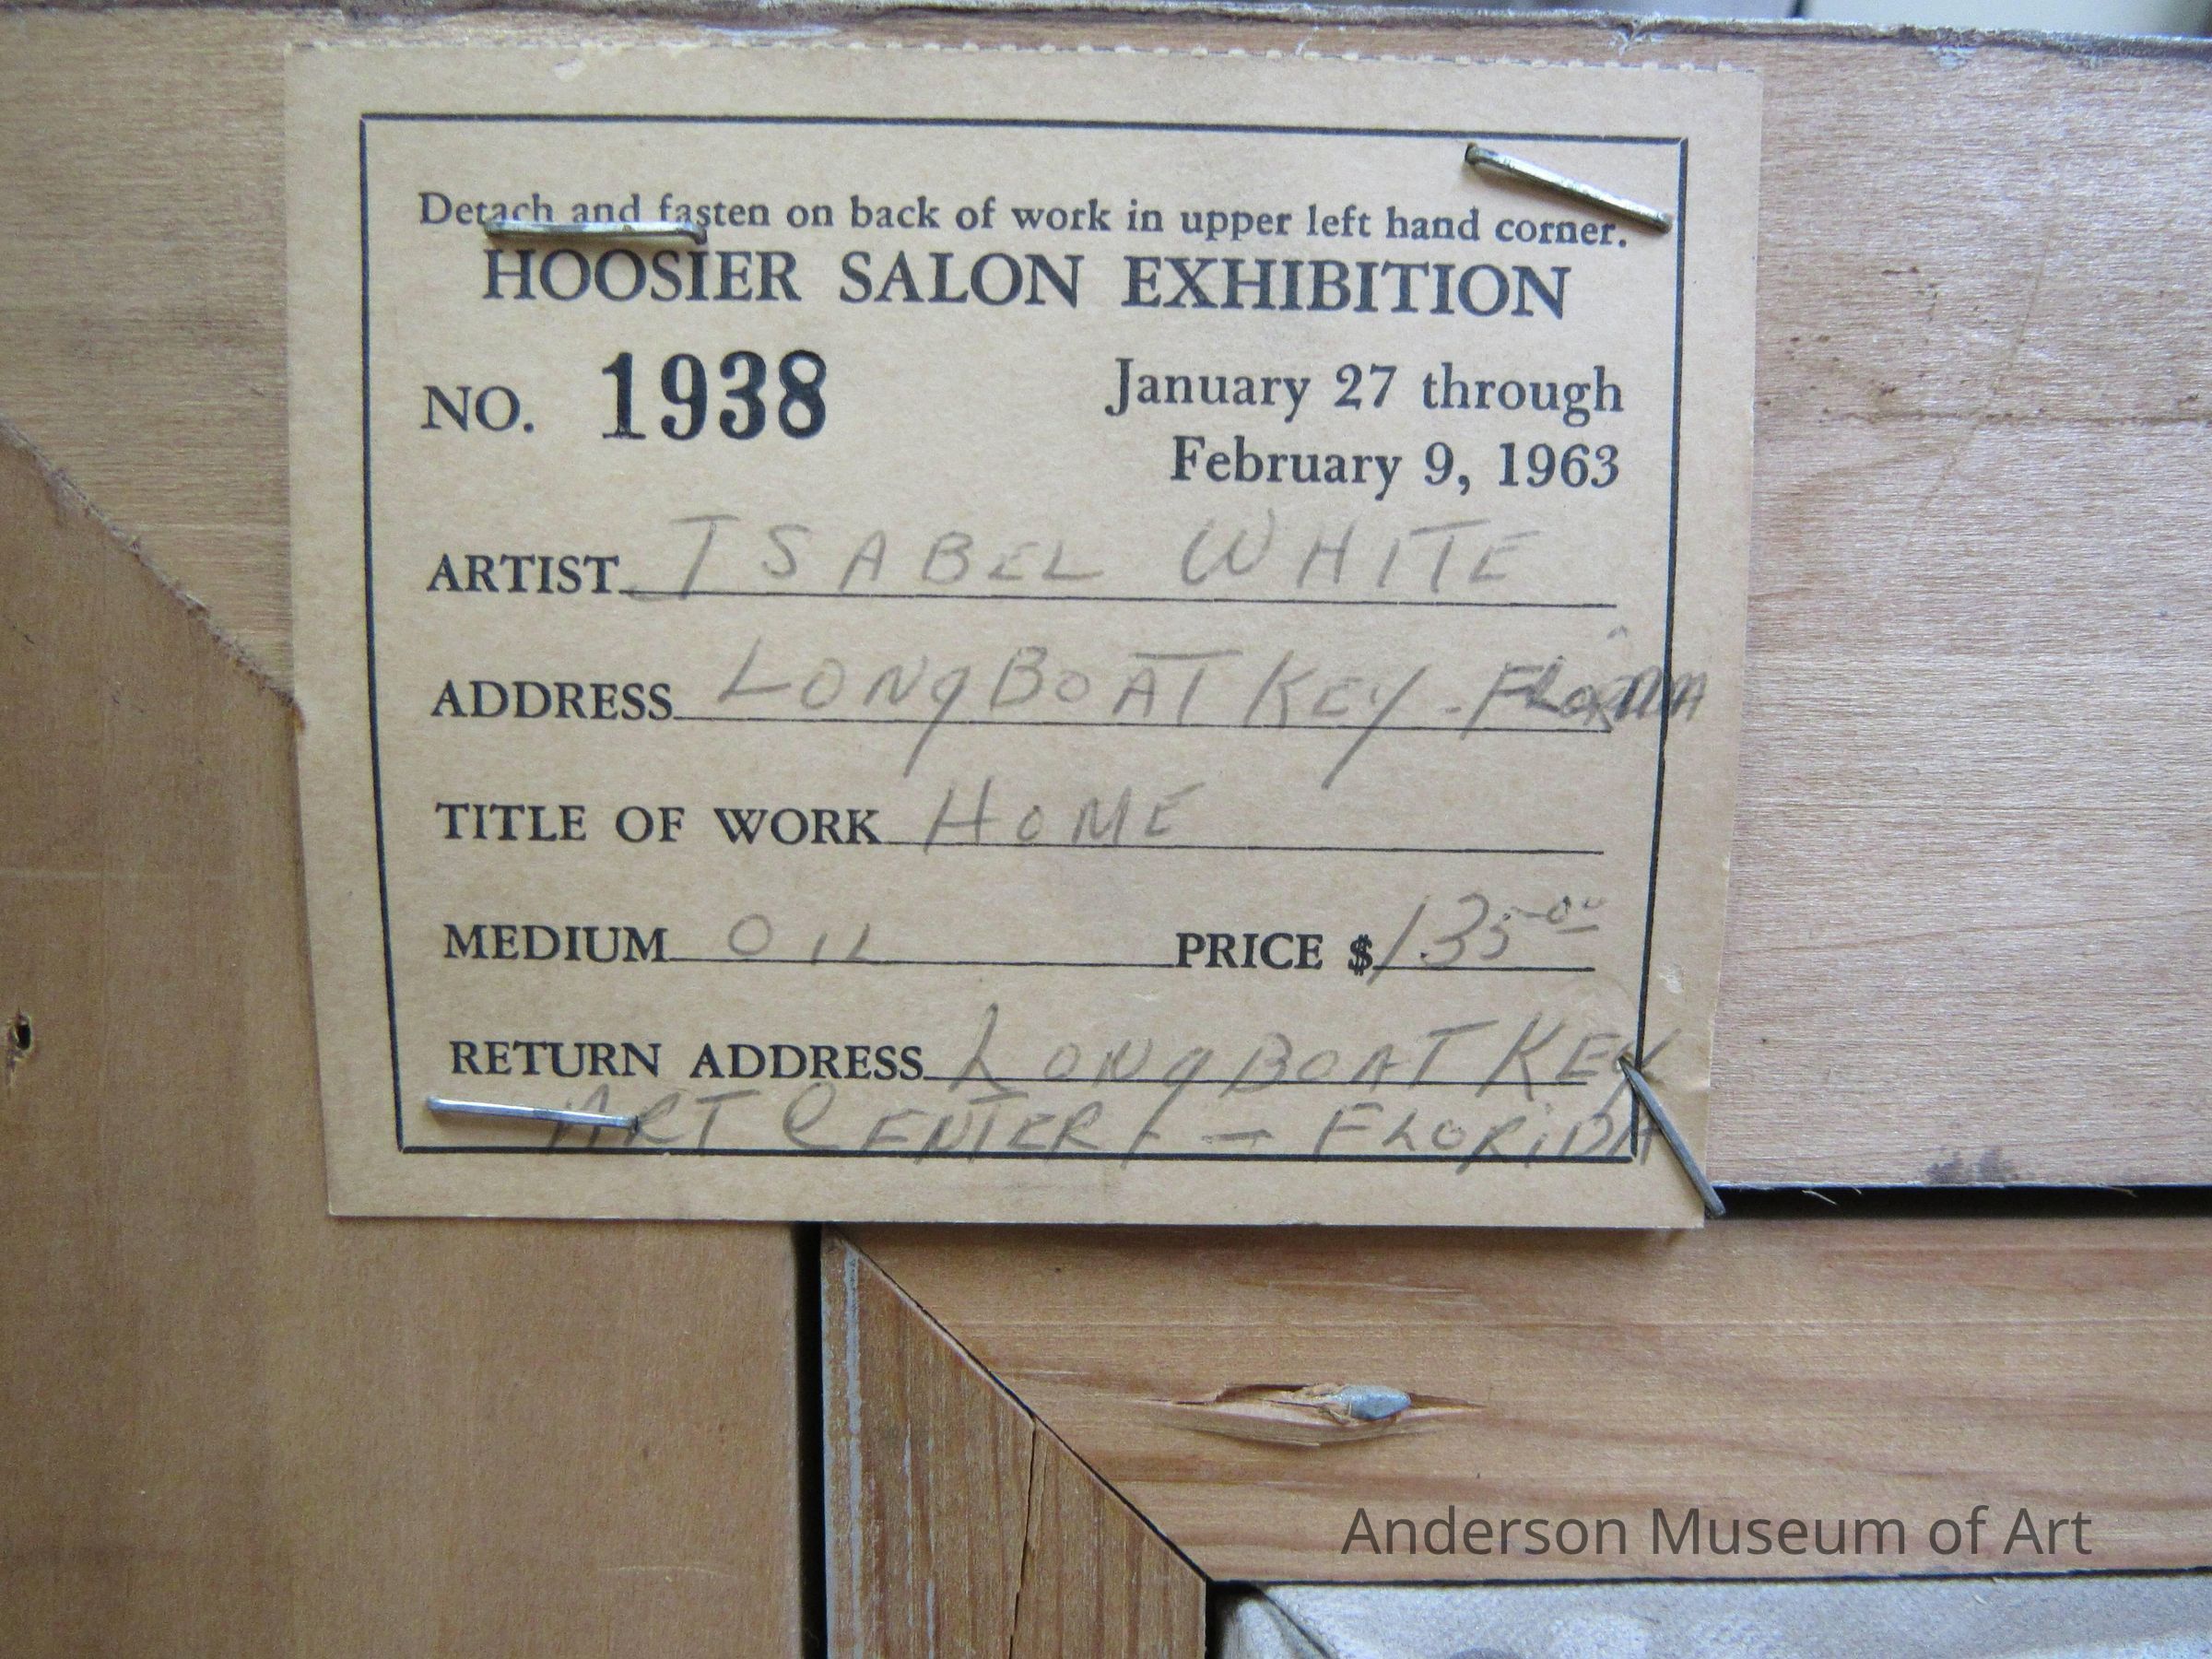 Detach and fasten on back of work in upper left hand corner.
HOOSIER SALON EXHIBITION
NO. 1938
January 27 through
February 9, 1963
ARTIST ISABEL WHITE
ADDRESS LONGBOAT KEY - FLORIDA
TITLE OF WORK HOME
MEDIUM OIL PRICE $ 135.00
RETURN ADDRESS LONGBOAT KEY
ART CENTER - FLORIDA
Anderson Museum of Art